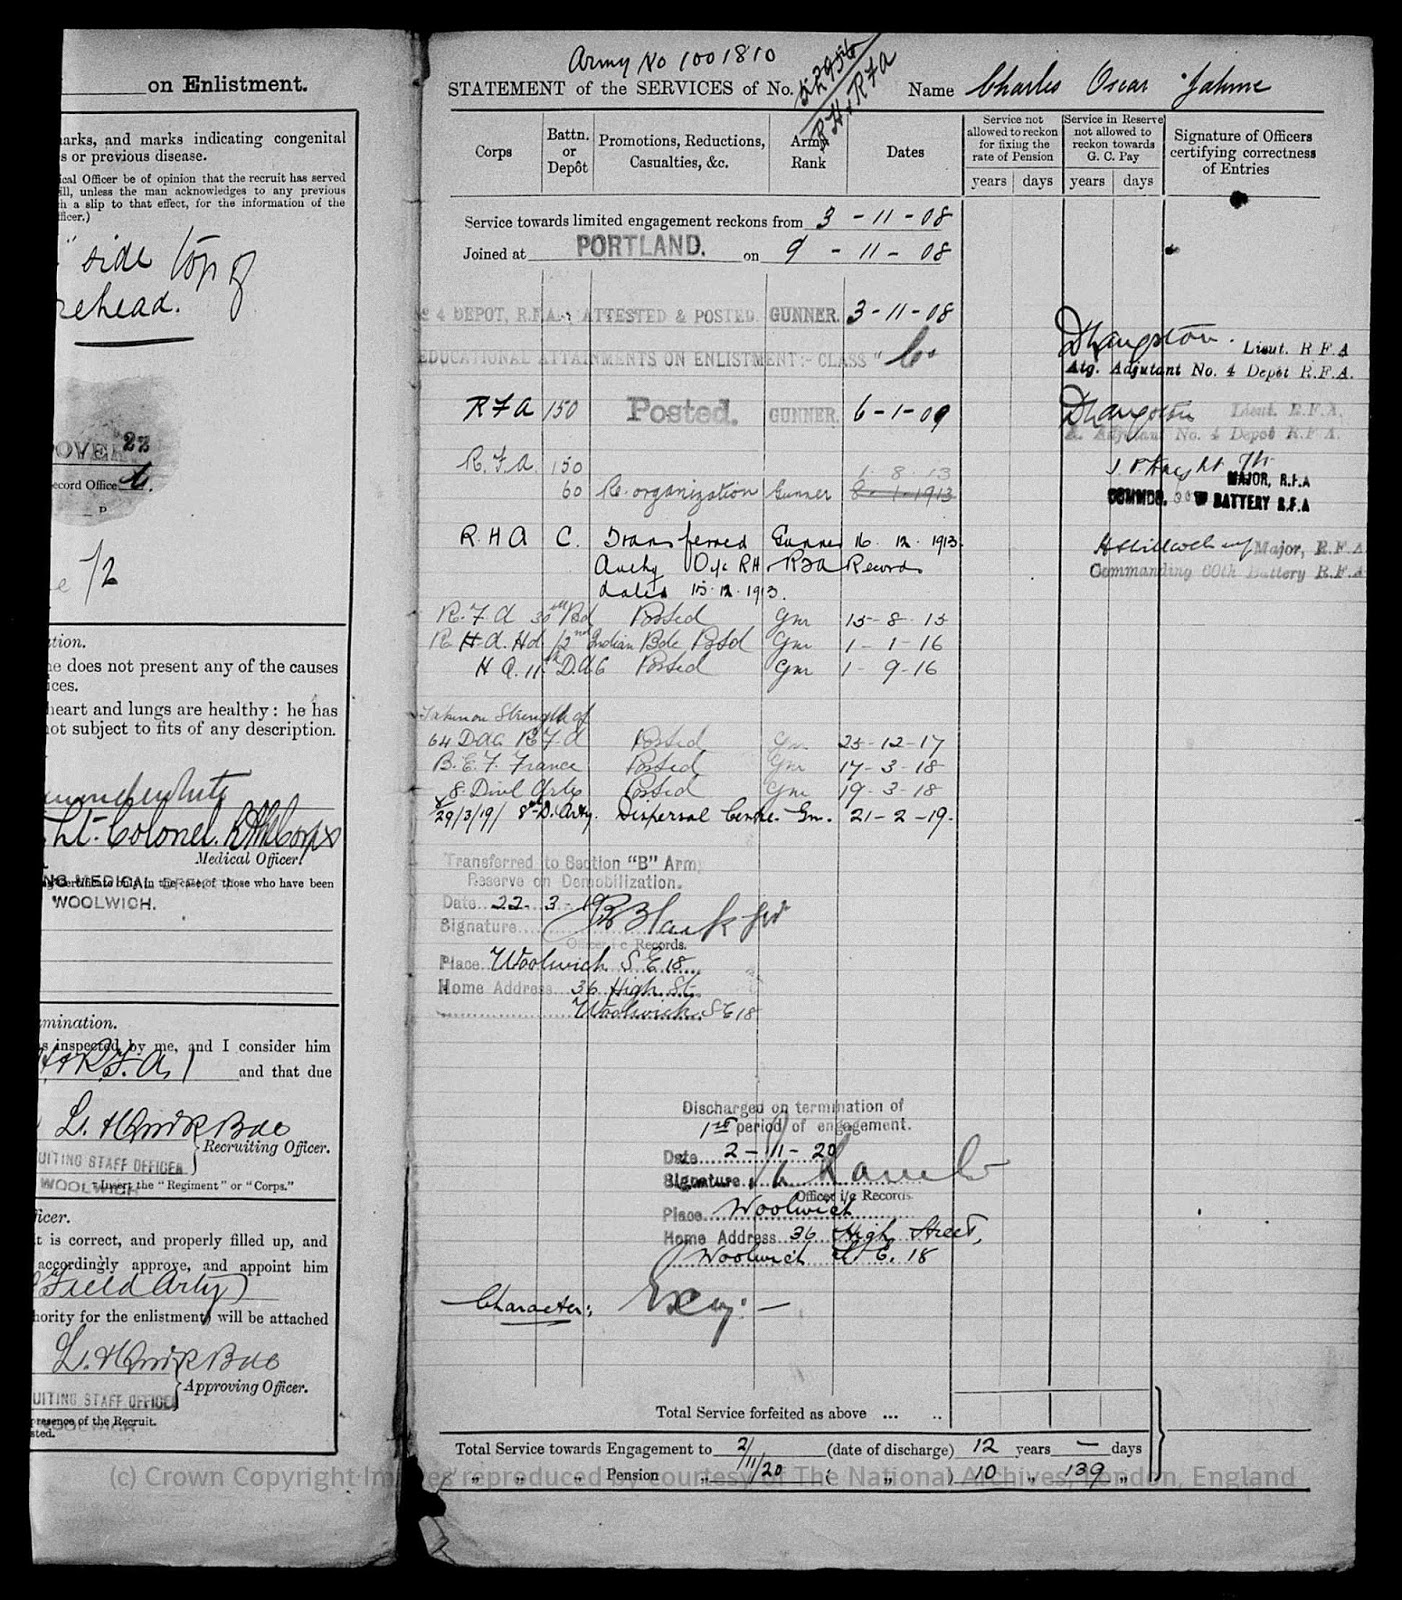 on Enlistment.
arks, and marks indicating congenital
s or previous disease.
ical Officer be of opinion that the recruit has served
ill, unless the man acknowledges to any previous
h a slip to that effect, for the information of the
fficer.)
side top of
rehead.
DOVER
22
ecord Office
P
1/2
ation.
e does not present any of the causes
ices.
heart and lungs are healthy : he has
not subject to fits of any description.
Lt-Colonel. RAMCorps
Medical Officer.
MEDICAL
in the case of those who have been
WOOLWICH.
mination.
s inspected by me, and I consider him
H & R.F.A.) and that due
Recruiting Officer.
UITING STAFF OFFICER
WOOLWICH
*Insert the "Regiment" or "Corps."
ficer.
t is correct, and properly filled up, and
accordingly approve, and appoint him
Field Arty)
hority for the enlistment) will be attached
Approving Officer.
UITING STAFF OFFICER
presence of the Recruit.
sted.
WOOLWICH
Army No 1001810
STATEMENT of the SERVICES of No. 52956 RH & RFA Name Charles Oscar Jahme
Corps
Battn. or Depôt
Promotions, Reductions, Casualties, &c.
Army Rank
Dates
Service not allowed to reckon for fixing the rate of Pension
Service in Reserve not allowed to reckon towards G. C. Pay
Signature of Officers certifying correctness of Entries
years days years days
Service towards limited engagement reckons from 3 - 11 - 08
Joined at PORTLAND. on 9 - 11 - 08
4 DEPOT, R.F.A. ATTESTED & POSTED. GUNNER. 3-11-08
EDUCATIONAL ATTAINMENTS ON ENLISTMENT:- CLASS "
Lieut. R F A
Atg. Adjutant No. 4 Depôt R.F.A.
RFA 150 Posted. GUNNER. 6-1-09
Lieut. R.F.A.
A. Adjutant No. 4 Depôt R.F.A.
R.F.A. 150 1.8.13
60 Re-organization Gunner 8-1-1913
MAJOR, R.F.A
COMMDG. BATTERY R.F.A
R H A C. Transferred Gunner 16.12.1913.
Authy O i/c RH & RFA Records
dated 15.12.1913.
Major, R.F.A
Commanding 60th Battery R.F.A
R.F.A 30th Bd Posted Gnr 15-8-15
R H.A. Hd 2nd Indian Bde Postd Gnr 1-1-16
H A. 11th D.A.C Posted Gnr 1-9-16
Taken on Strength of
64 DAC RFA Posted Gnr 25-12-17
B.E.F. France Posted Gnr 17-3-18
8 Divl Arty Posted Gnr 19-3-18
29/3/19/ 8th D. Arty. Dispersal Centre. Gnr. 21-2-19.
Transferred to Section "B" Army
Reserve on Demobilization.
Date 22-3-19
Signature
Officer i/c Records.
Place Woolwich S E 18
Home Address 36 High St.
Woolwich S E 18
Discharged on termination of
1st period of engagement.
Date 2-11-20
Signature
Officer i/c Records
Place Woolwich
Home Address 36 High Street,
Woolwich S E. 18
Character:
Total Service forfeited as above ...
Total Service towards Engagement to 2/11/20 (date of discharge) 12 years — days
" " " Pension " ( " ) 10 " 139 "
(c) Crown Copyright Images reproduced by courtesy of The National Archives, London, England